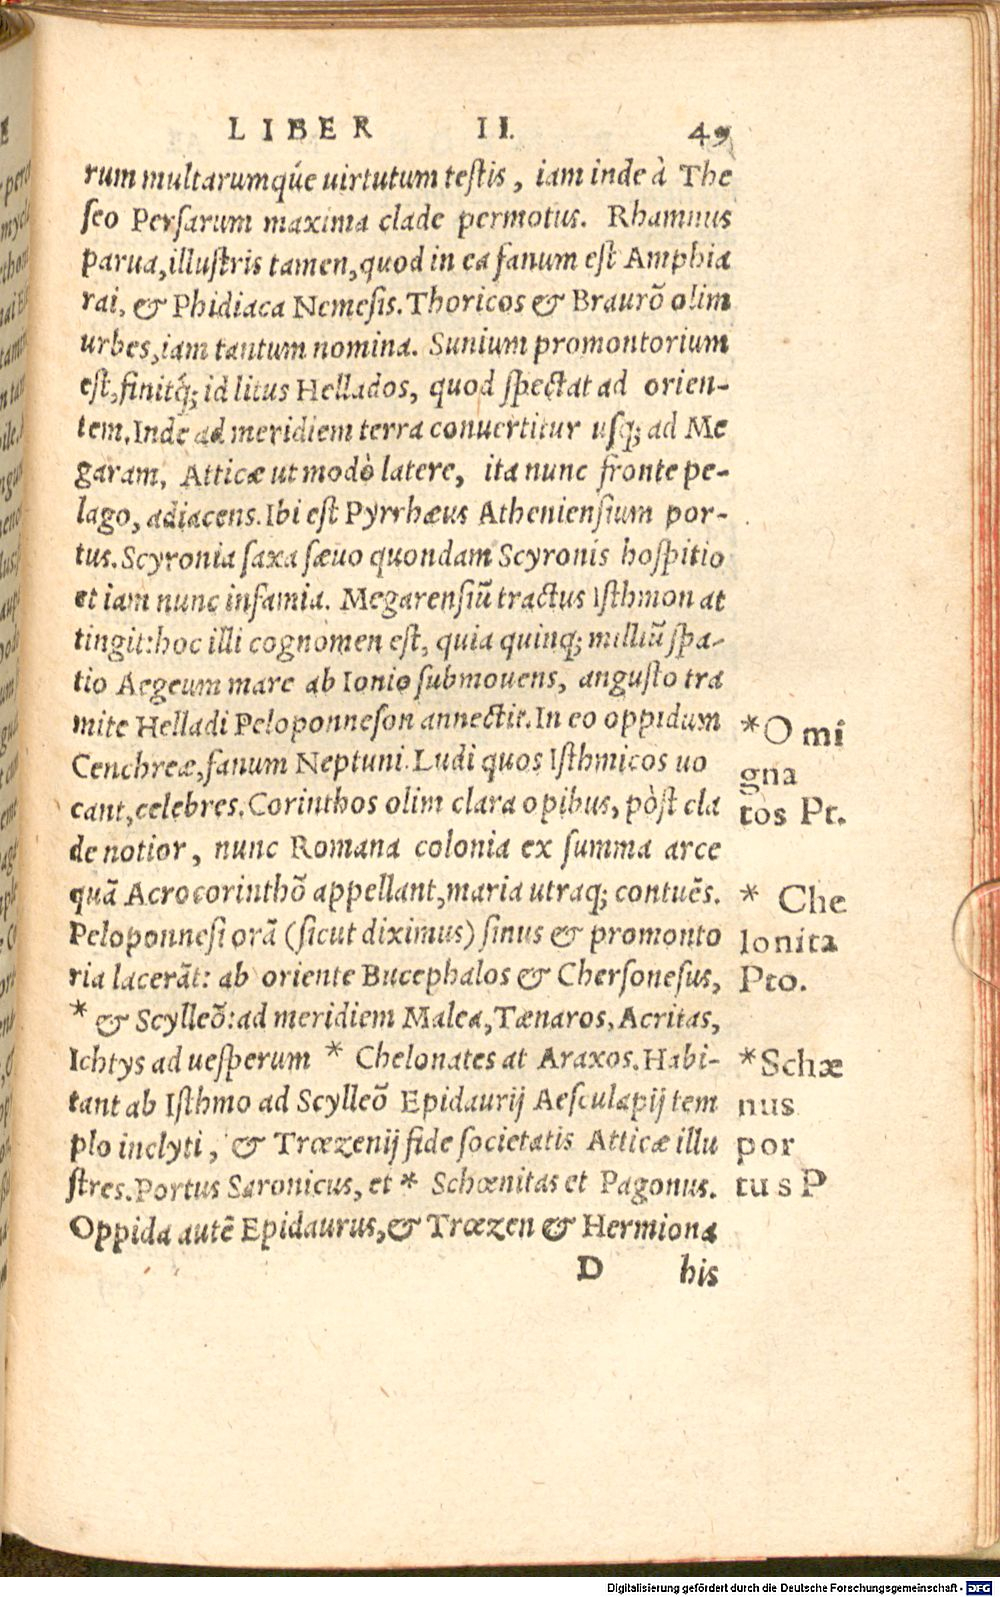 LIBER II. 49
rum multarumq́ue uirtutum testis, iam inde à The
seo Persarum maxima clade permotus. Rhamnus
parua, illustris tamen, quod in ea fanum est Amphia
rai, & Phidiaca Nemesis. Thoricos & Braurō olim
urbes, iam tantum nomina. Sunium promontorium
est, finitq́; id litus Hellados, quod spectat ad orien-
tem. Inde ad meridiem terra conuertitur usq; ad Me
garam, Atticæ ut modò latere, ita nunc fronte pe-
lago, adiacens. Ibi est Pyrrhæus Atheniensium por-
tus. Scyronia saxa sæuo quondam Scyronis hospitio
et iam nunc infamia. Megarensiū tractus Isthmon at
tingit: hoc illi cognomen est, quia quinq; milliū spa-
tio Aegeum mare ab Ionio submouens, angusto tra
mite Helladi Peloponneson annectit. In eo oppidum
Cenchreæ, fanum Neptuni. Ludi quos Isthmicos uo
cant, celebres. Corinthos olim clara opibus, pòst cla
de notior, nunc Romana colonia ex summa arce
quā Acrocorinthō appellant, maria utraq; contuēs.
Peloponnesi orā (sicut diximus) sinus & promonto
ria lacerāt: ab oriente Bucephalos & Chersonesus,
* & Scylleō: ad meridiem Malea, Tænaros, Acritas,
Ichtys ad uesperum * Chelonates at Araxos. Habi-
tant ab Isthmo ad Scylleō Epidaurij Aesculapij tem
plo inclyti, & Trœzenij fide societatis Atticæ illu
stres. Portus Saronicus, et * Schœnitas et Pagonus.
Oppida autē Epidaurus, & Trœzen & Hermiona
D his
*O mi
gna
tos Pr.
* Che
lonita
Pro.
*Schæ
nus
por
tus P
Digitalisierung gefördert durch die Deutsche Forschungsgemeinschaft - DFG